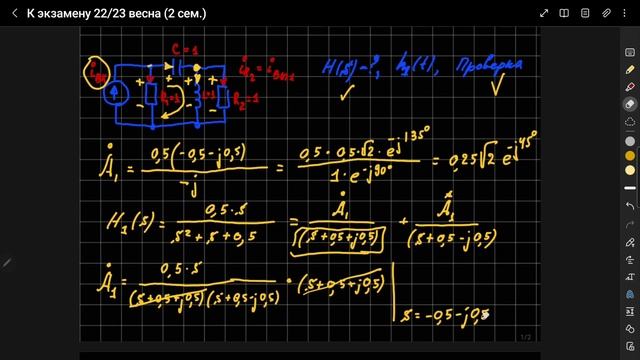 К экзамену 22/23 весна (2 сем.)
2/2
C=1
i_R2 = i_вых
H(s)-?, h₁(t), Проверка
i_вх
R₂=1
Ȧ₁ = 0,5(-0,5-j0,5) / -j = 0,5·0,5·√2·e^-j135° / 1·e^-j90° = 0,25√2 e^-j45°
H₁(s) = 0,5·s / s²+s+0,5 = Ȧ₁ / (s+0,5+j0,5) + Å₁ / (s+0,5-j0,5)
Ȧ₁ = 0,5·s / (s+0,5+j0,5)(s+0,5-j0,5) · (s+0,5+j0,5) | s=-0,5-j0,5
1/2